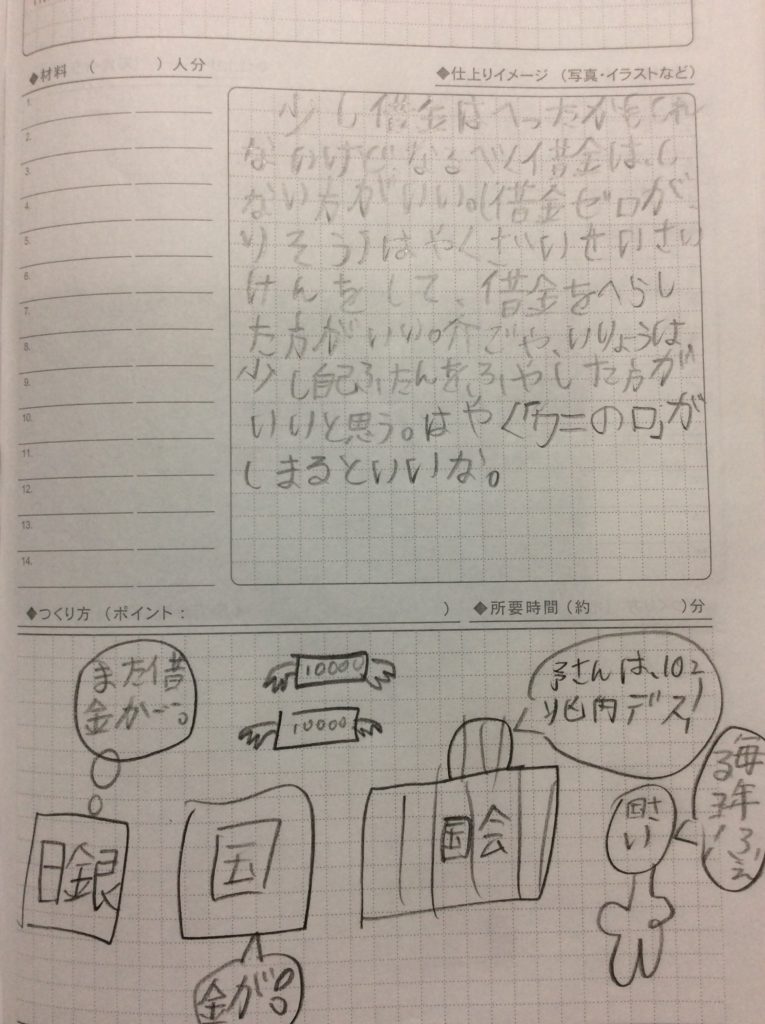 ◆材料 （　　　）人分
◆仕上りイメージ （写真・イラストなど）
1.
2.
3.
4.
5.
6.
7.
8.
9.
10.
11.
12.
13.
14.
少し借金はへったかもしれ
ないけどなるべく借金は、し
ない方がいい。(借金ゼロが、
りそう)はやくざいせいさい
けんをして、借金をへらし
た方がいい。介ごや、いりょうは、
少し自己ふたんを、ふやした方が
いいと思う。はやく「ワニの口」が
しまるといいな。
◆つくり方 （ポイント：　　　　　　）
◆所要時間（約　　　）分
また借
金が…。
10000
10000
さんは、102
兆
円デス!
毎年ふえ
る
日銀
国
国会
国さ
い
金が!